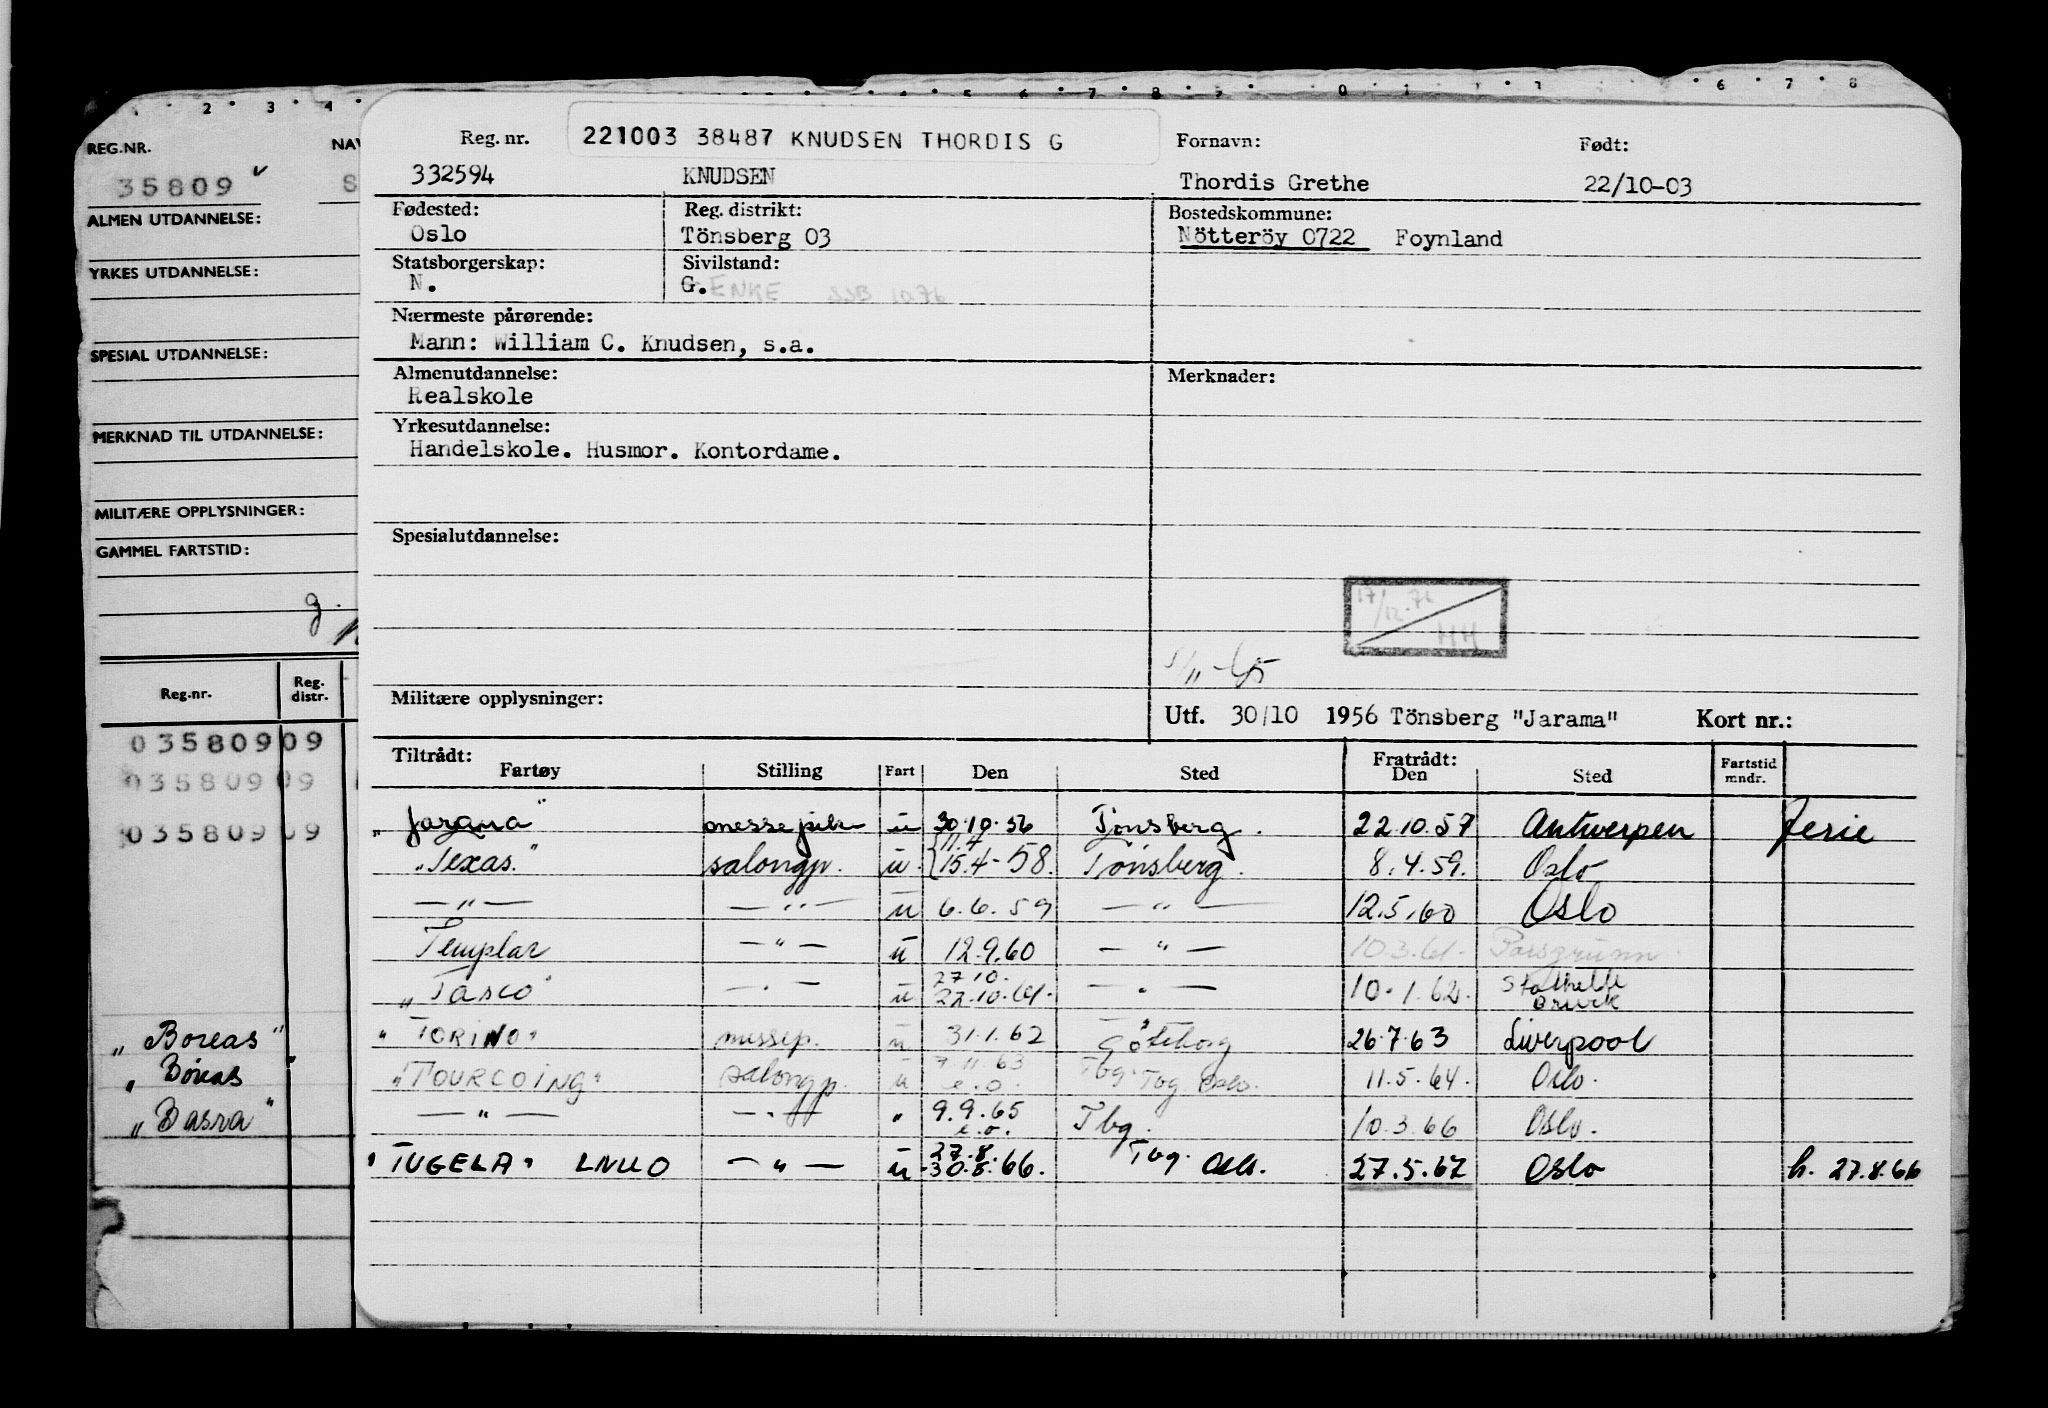 2 3 4 5 6 7 8 9 0 1 6 7 8
REG.NR. NAV
35809 S
ALMEN UTDANNELSE:
YRKES UTDANNELSE:
SPESIAL UTDANNELSE:
MERKNAD TIL UTDANNELSE:
MILITÆRE OPPLYSNINGER:
GAMMEL FARTSTID:
g.
Reg.nr. Reg. distr.
03580909
03580909
03580909
"Boreas"
" Boreas "
"Basra"
Reg. nr. 221003 38487 KNUDSEN THORDIS G Fornavn: Født:
332594 KNUDSEN Thordis Grethe 22/10-03
Fødested: Reg. distrikt: Bostedskommune:
Oslo Tönsberg 03 Nötteröy 0722 Foynland
Statsborgerskap: Sivilstand:
N. G. ENKE SSB 10.76
Nærmeste pårørende:
Mann: William C. Knudsen, s.a.
Almenutdannelse: Merknader:
Realskole
Yrkesutdannelse:
Handelskole. Husmor. Kontordame.
Spesialutdannelse:
17/12-76 HH
5/11-65
Militære opplysninger: Utf. 30/10 1956 Tönsberg "Jarama" Kort nr.:
Tiltrådt: Fratrådt:
Fartøy Stilling Fart Den Sted Den Sted Fartstid mndr.
"Jarama" messepike u 30.10.56 Tönsberg. 22.10.57 Antwerpen ferie
11.4
"Texas." salongp. u. 15.4-58. Tönsberg. 8.4.59. Oslo
— " — — " — u 6.6.59 — " — 12.5.60 Oslo
Templar — " — u 12.9.60 — " — 10.3.61. Porsgrunn
27.10.
"Tasco" — " — u 22.10.61. — " — 10.1.62. Stathelle Bruck
"TORINO" messep. u 31.1.62 Göteborg 26.7.63 Liverpool
7.11.63 Tbg.
"TOURCOING" salongp. u e.o. Tbg Oslo. 11.5.64. Oslo.
— " — — " — " 9.9.65 Tbg. 10.3.66 Oslo.
e.o.
27.8.
"TUGELA" LNUO — " — u 30.8.66. Tbg. Oslo. 27.5.67 Oslo h. 27.8.66